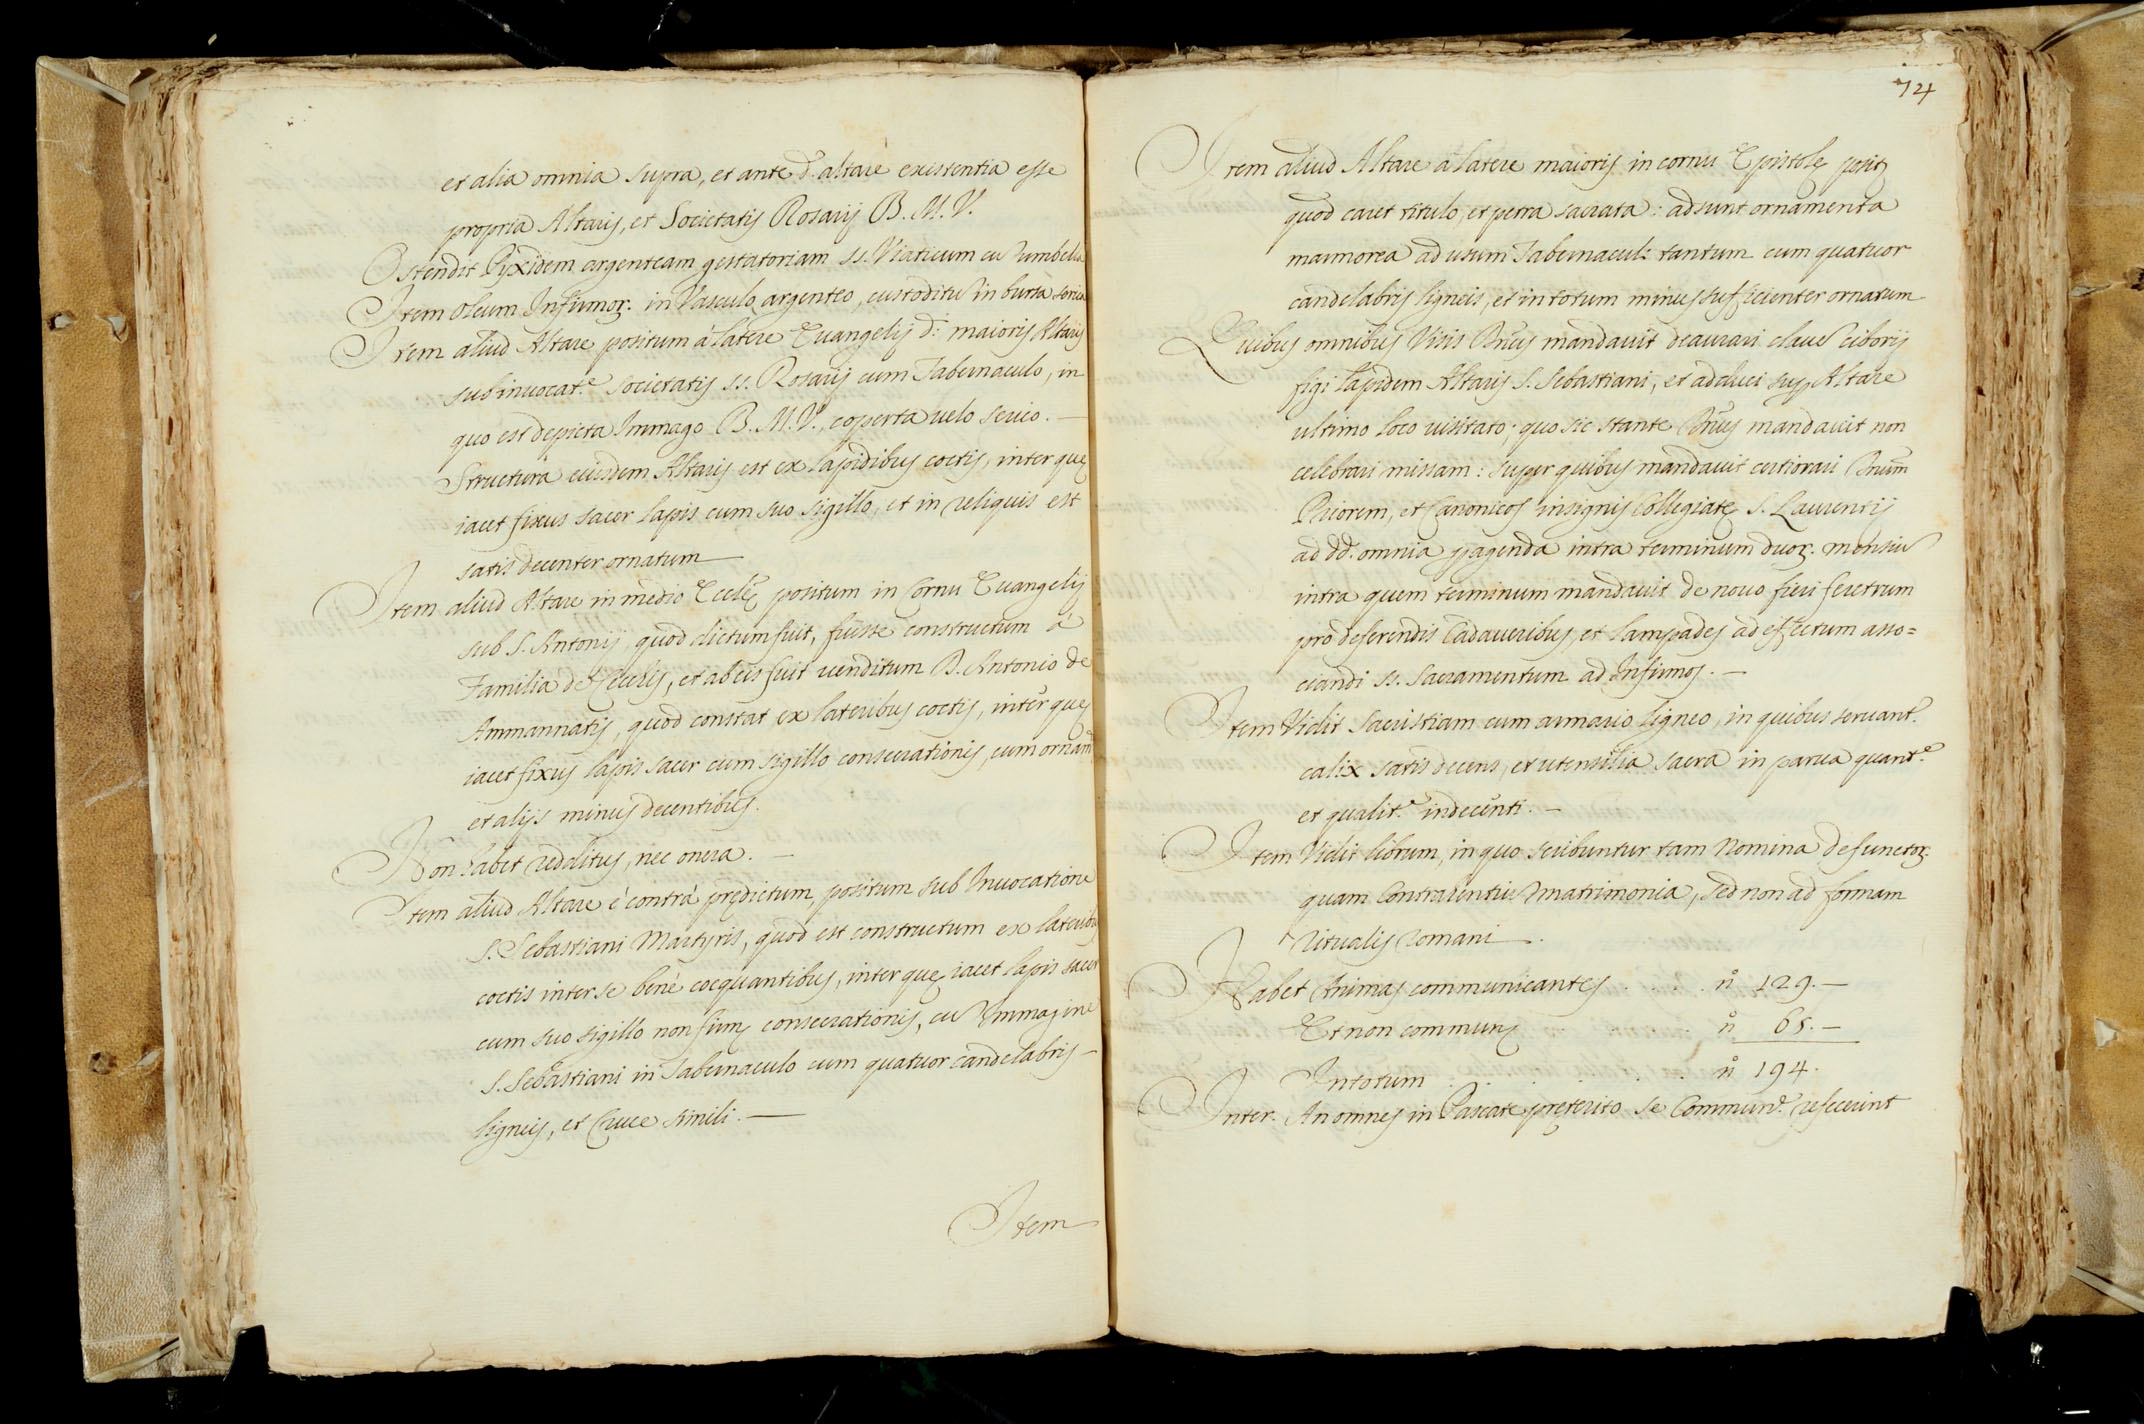 et alia omnia supra, et ante d. altare existentia esse
propria Altaris, et Societatis Rosarij B. M. V.
Ostendit Pyxidem argenteam gestatoriam ss. Viaticum cu Umbella
Item oleum Infirmoꝝ. in Vasculo argenteo, custoditu in bursa serica
Item aliud Altare positum à latere Euangelij d: maioris Altaris
sub inuocat.e Societatis ss. Rosarij cum Tabernaculo, in
quo est depicta Immago B. M. V., coperta uelo serico. —
Structura eiusdem Altaris est ex lapidibus coctis, inter quę
iacet fixus sacer lapis cum suo sigillo, et in reliquis est
satis decenter ornatum —
Item aliud Altare in medio Eccl.ę positum in Cornu Euangelij
sub S. Antonij, quod dictum fuit, fuisse constructum à
Familia de, et ab eis fuit uenditum D. Antonio de
Ammannatis, quod constat ex lateribus coctis, inter quę
iacet fixus lapis sacer cum sigillo consecrationis, cum ornam.
et alijs minus decentibus.
Non habet redditus, nec onera. —
Item aliud Altare è contrà prędictum, positum sub Inuocatione
S. Sebastiani Martyris, quod est constructum ex lateribꝫ
coctis inter se benè coequantibus, inter quę iacet lapis sacer
cum suo sigillo non consecrationis, cu Immagine
S. Sebastiani in Tabernaculo cum quatuor candelabris —
ligneis, et Cruce simili. —
Item
74
Item aliud Altare à latere maioris in cornu Epistolę posit.
quod caret titulo, et petra sacrata: adsunt ornamenta
marmorea ad usum Tabernaculi tantum cum quatuor
candelabris ligneis, et in totum minus sufficienter ornatum
Quibus omnibus Visis Dnus mandauit deaurari claue Ciborij
figi lapidem Altaris S. Sebastiani, et adduci sup Altare
ultimo loco uisitato; quo sic stante Dnus mandauit non
celebrari missam: super quibus mandauit certiorari Dnum
Priorem, et Canonicos insignis Collegiatę S. Laurentij
ad dd. omnia ppagenda intra terminum duoꝝ. mensiu
intra quem terminum mandauit de nouo fieri feretrum
pro deferendis Cadaueribus, et lampades ad effectum asso=
ciandi ss. Sacramentum ad Infirmos. —
Item Vidit Sacristiam cum armario ligneo, in quibus seruant.r
calix satis decens, et utensilia sacra in parua quant.e
et qualit.e indecenti. —
Item Vidit librum, in quo scribuntur tam Nomina defunctoꝝ.
quam Contrahentiu Matrimonia, sed non ad formam
Ritualis Romani —.
Habet Animas communicantes . . . . . n.o 129. —
Et non commun. . . . n.o 65. —
In totum . . . . . . . n.o 194.
Inter. An omnes in Pascate pręterito se Commun.e refecerint